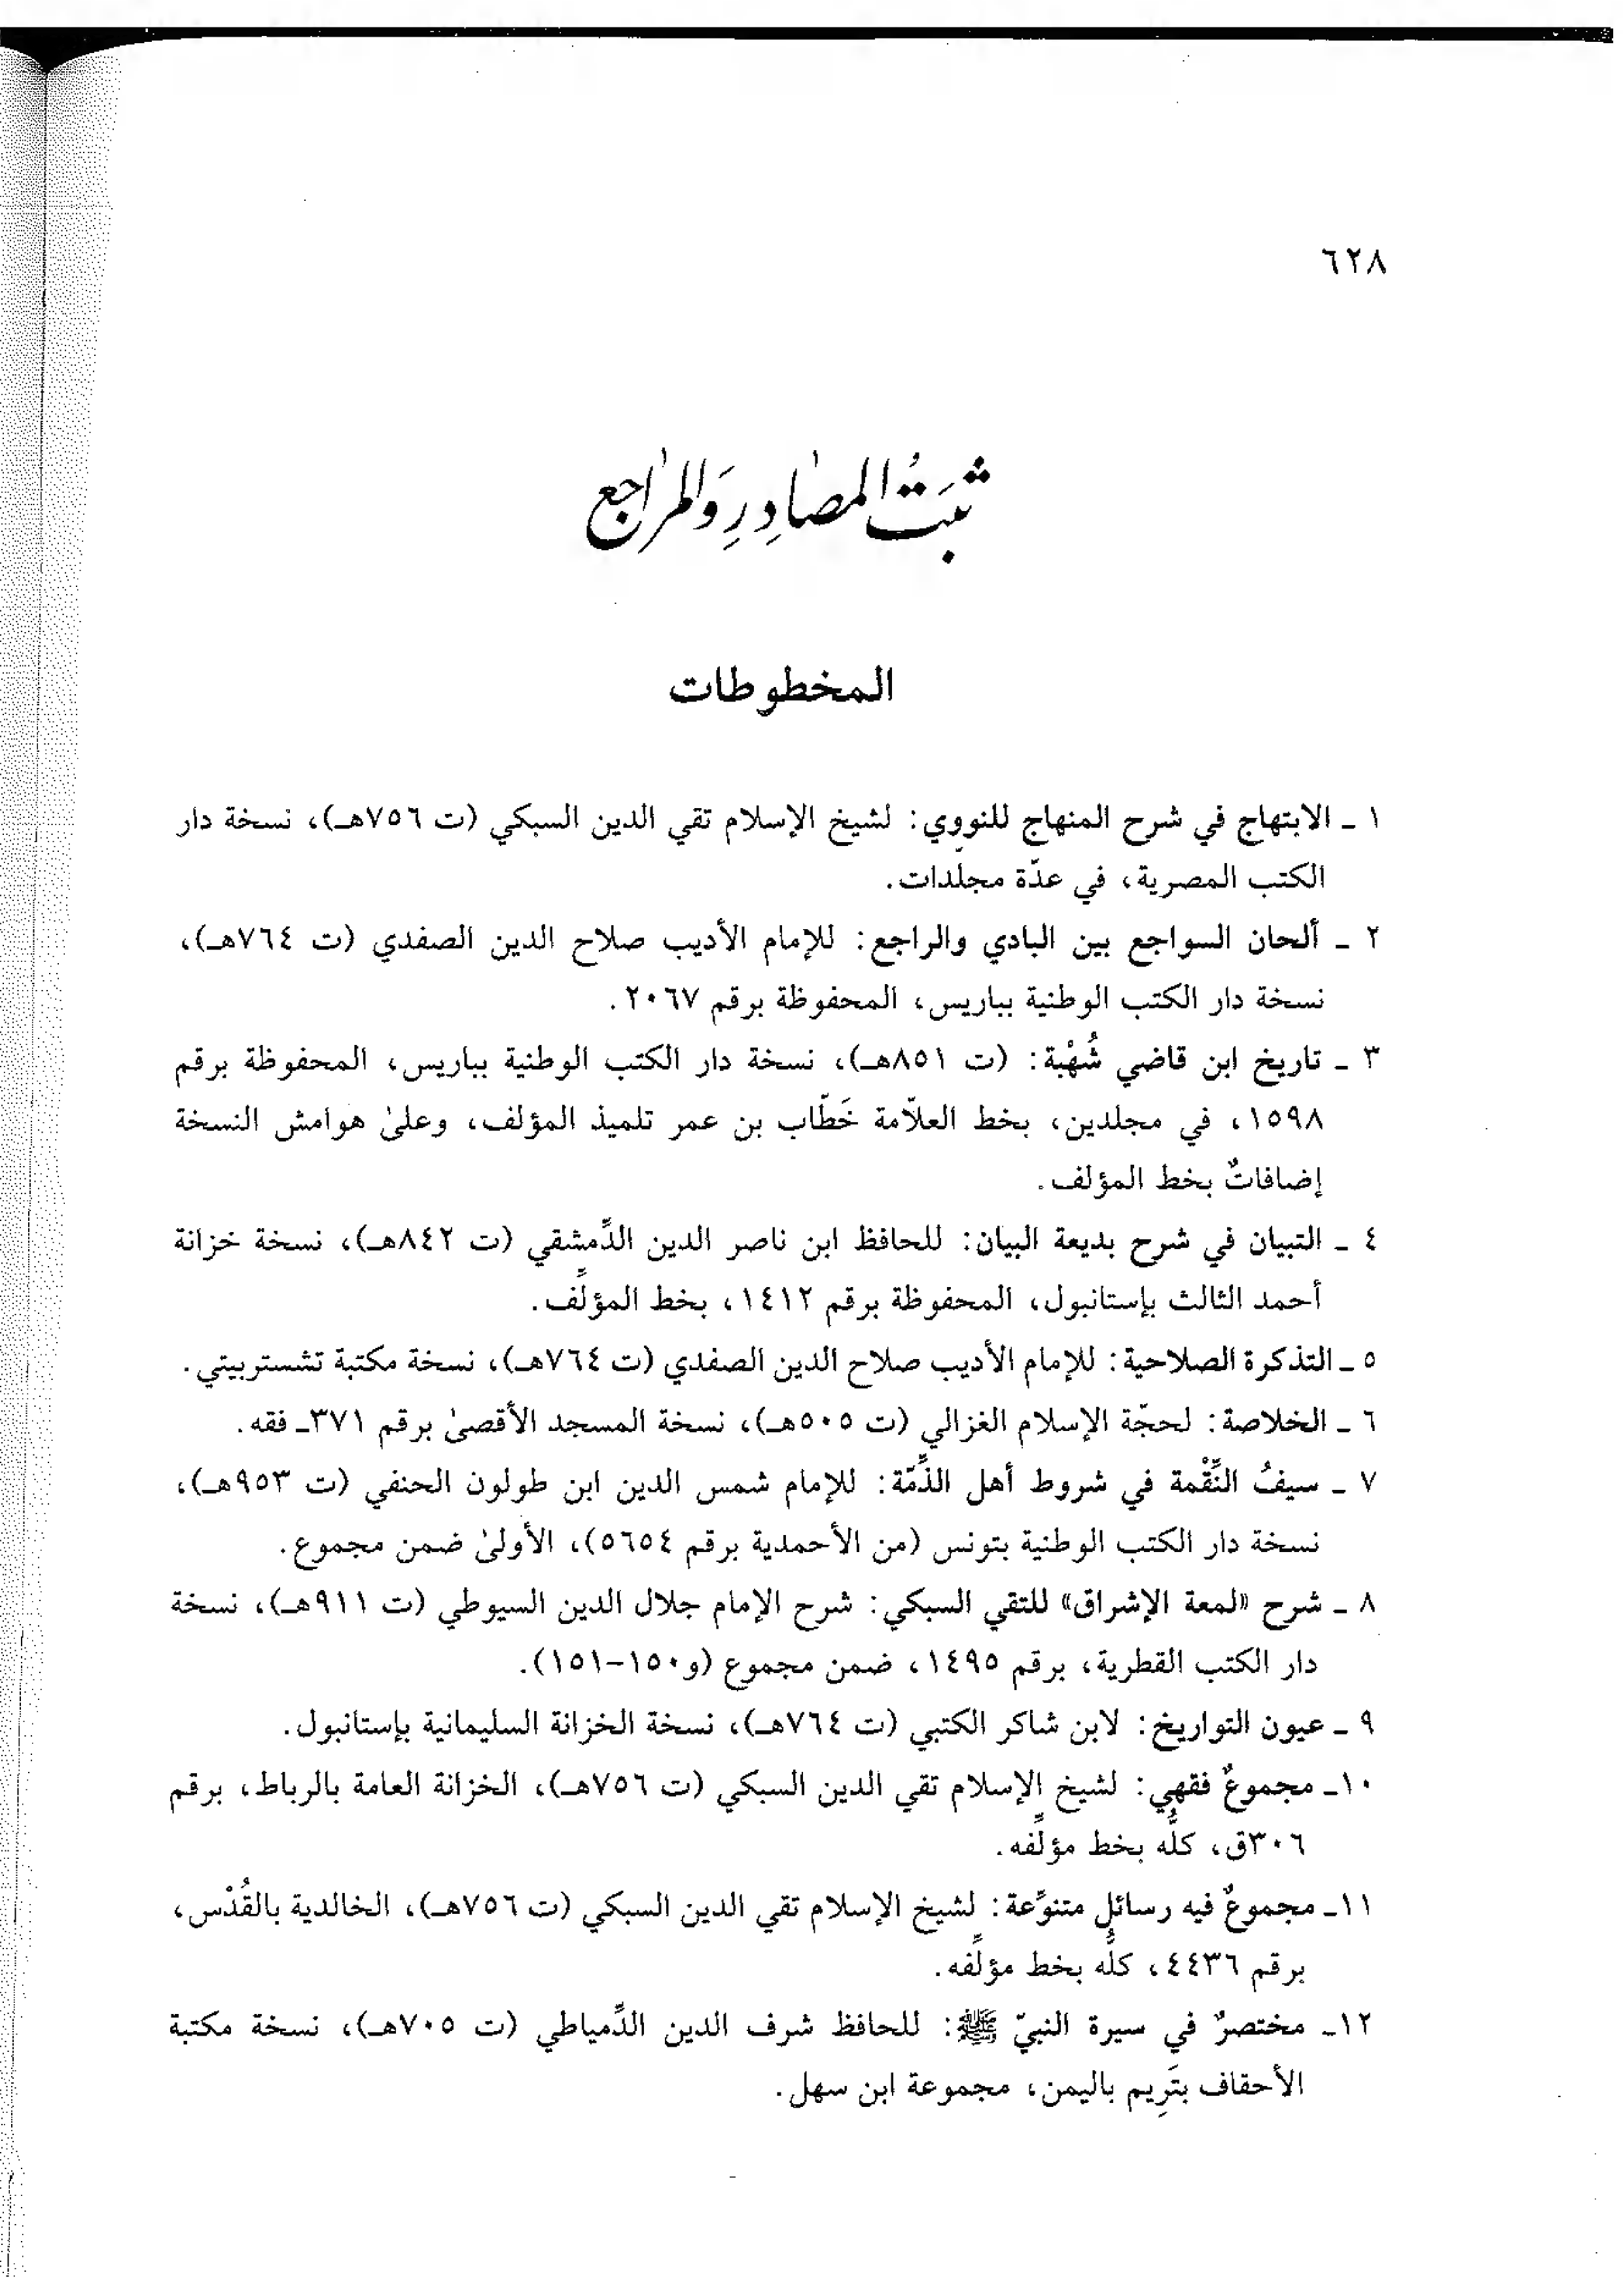 ٦٢٨
ثَبَتُ المصَادِرِ وَالمرَاجع
المخطوطات
١ ـ الابتهاج في شرح المنهاج للنووي: لشيخ الإسلام تقي الدين السبكي (ت ٧٥٦هـ)، نسخة دار
الكتب المصرية، في عدّة مجلّدات.
٢ ـ ألحان السواجع بين البادي والراجع: للإمام الأديب صلاح الدين الصفدي (ت ٧٦٤هـ)،
نسخة دار الكتب الوطنية بباريس، المحفوظة برقم ٢٠٦٧.
٣ ـ تاريخ ابن قاضي شُهْبة: (ت ٨٥١هـ)، نسخة دار الكتب الوطنية بباريس، المحفوظة برقم
١٥٩٨، في مجلدين، بخط العلاّمة خَطّاب بن عمر تلميذ المؤلف، وعلىٰ هوامش النسخة
إضافاتٌ بخط المؤلف.
٤ ـ التبيان في شرح بديعة البيان: للحافظ ابن ناصر الدين الدِّمشقي (ت ٨٤٢هـ)، نسخة خزانة
أحمد الثالث بإستانبول، المحفوظة برقم ١٤١٢، بخط المؤلِّف.
٥ ـ التذكرة الصلاحية: للإمام الأديب صلاح الدين الصفدي (ت ٧٦٤هـ)، نسخة مكتبة تشستربيتي.
٦ ـ الخلاصة: لحجّة الإسلام الغزالي (ت ٥٠٥هـ)، نسخة المسجد الأقصىٰ برقم ٣٧١ـ فقه.
٧ ـ سيفُ النِّقْمة في شروط أهل الذِّمّة: للإمام شمس الدين ابن طولون الحنفي (ت ٩٥٣هـ)،
نسخة دار الكتب الوطنية بتونس (من الأحمدية برقم ٥٦٥٤)، الأولىٰ ضمن مجموع.
٨ ـ شرح «لمعة الإشراق» للتقي السبكي: شرح الإمام جلال الدين السيوطي (ت ٩١١هـ)، نسخة
دار الكتب القطرية، برقم ١٤٩٥، ضمن مجموع (و١٥٠-١٥١).
٩ ـ عيون التواريخ: لابن شاكر الكتبي (ت ٧٦٤هـ)، نسخة الخزانة السليمانية بإستانبول.
١٠ـ مجموعٌ فقهي: لشيخ الإسلام تقي الدين السبكي (ت ٧٥٦هـ)، الخزانة العامة بالرباط، برقم
٣٠٦ق، كلُّه بخط مؤلِّفه.
١١ـ مجموعٌ فيه رسائل متنوِّعة: لشيخ الإسلام تقي الدين السبكي (ت ٧٥٦هـ)، الخالدية بالقُدْس،
برقم ٤٤٣٦، كلُّه بخط مؤلِّفه.
١٢ـ مختصرٌ في سيرة النبيّ ﷺ: للحافظ شرف الدين الدِّمياطي (ت ٧٠٥هـ)، نسخة مكتبة
الأحقاف بتَرِيم باليمن، مجموعة ابن سهل.